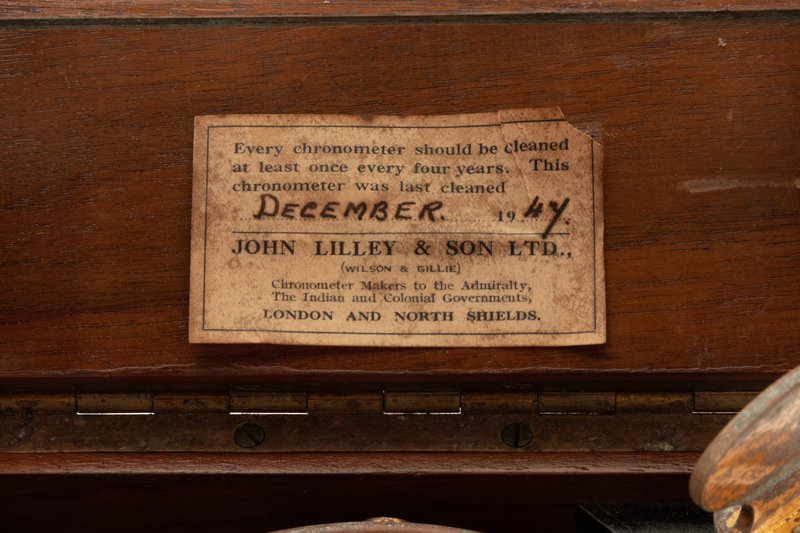 Every chronometer should be cleaned
at least once every four years. This
chronometer was last cleaned
DECEMBER. 1947.
JOHN LILLEY & SON LTD.,
(WILSON & GILLIE)
Chronometer Makers to the Admiralty,
The Indian and Colonial Governments,
LONDON AND NORTH SHIELDS.